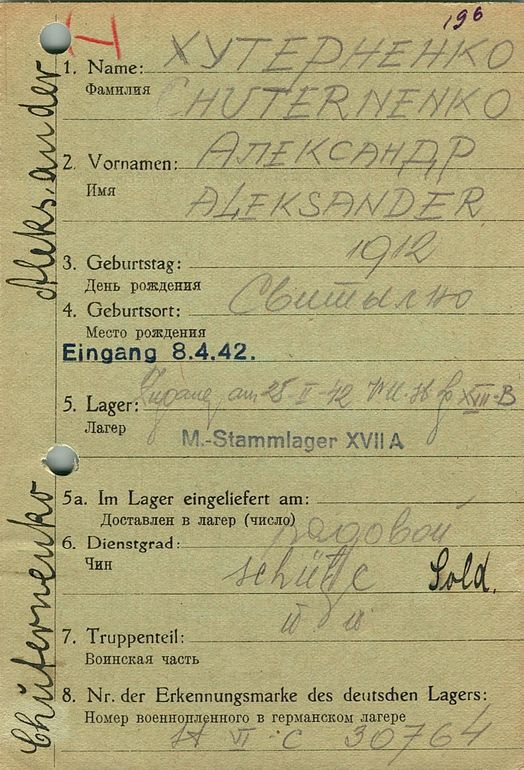 196
ХУТЕРНЕНКО
1. Name:
Фамилия
CHUTERNENKO
АЛЕКСАНДР
2. Vornamen:
Имя
ALEKSANDER
1912
3. Geburtstag:
День рождения
4. Geburtsort:
Место рождения
Eingang 8.4.42.
am 25-II-42 XVII-B
5. Lager:
Лагер
M.-Stammlager XVII A
5a. Im Lager eingeliefert am:
Доставлен в лагер (число)
рядовой
6. Dienstgrad:
Чин
Schütze Sold.
7. Truppenteil:
Воинская часть
8. Nr. der Erkennungsmarke des deutschen Lagers:
Номер военнопленного в германском лагере
VI - C 30764
Chuternenko Aleksander